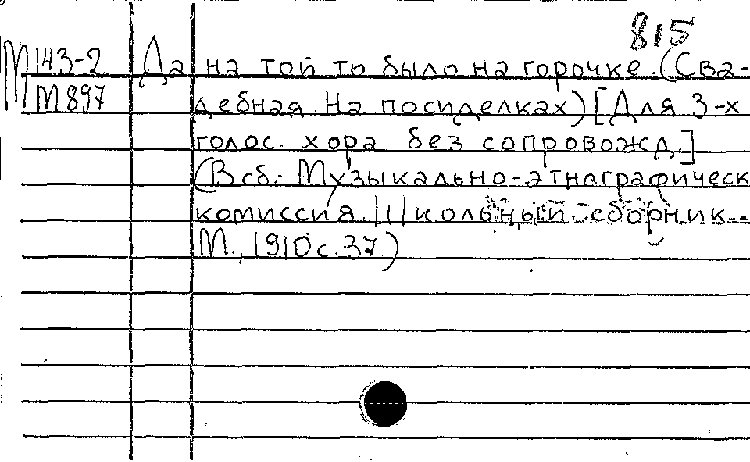 815
М143-2 Да на той то было на горочке. (Сва-
М897 дебная. На посиделках) [Для 3-х
голос. хора без сопровожд.]
(В сб.: Музыкально-этнографическ
комиссия. Школьный сборник..
М., 1910 с. 37.)